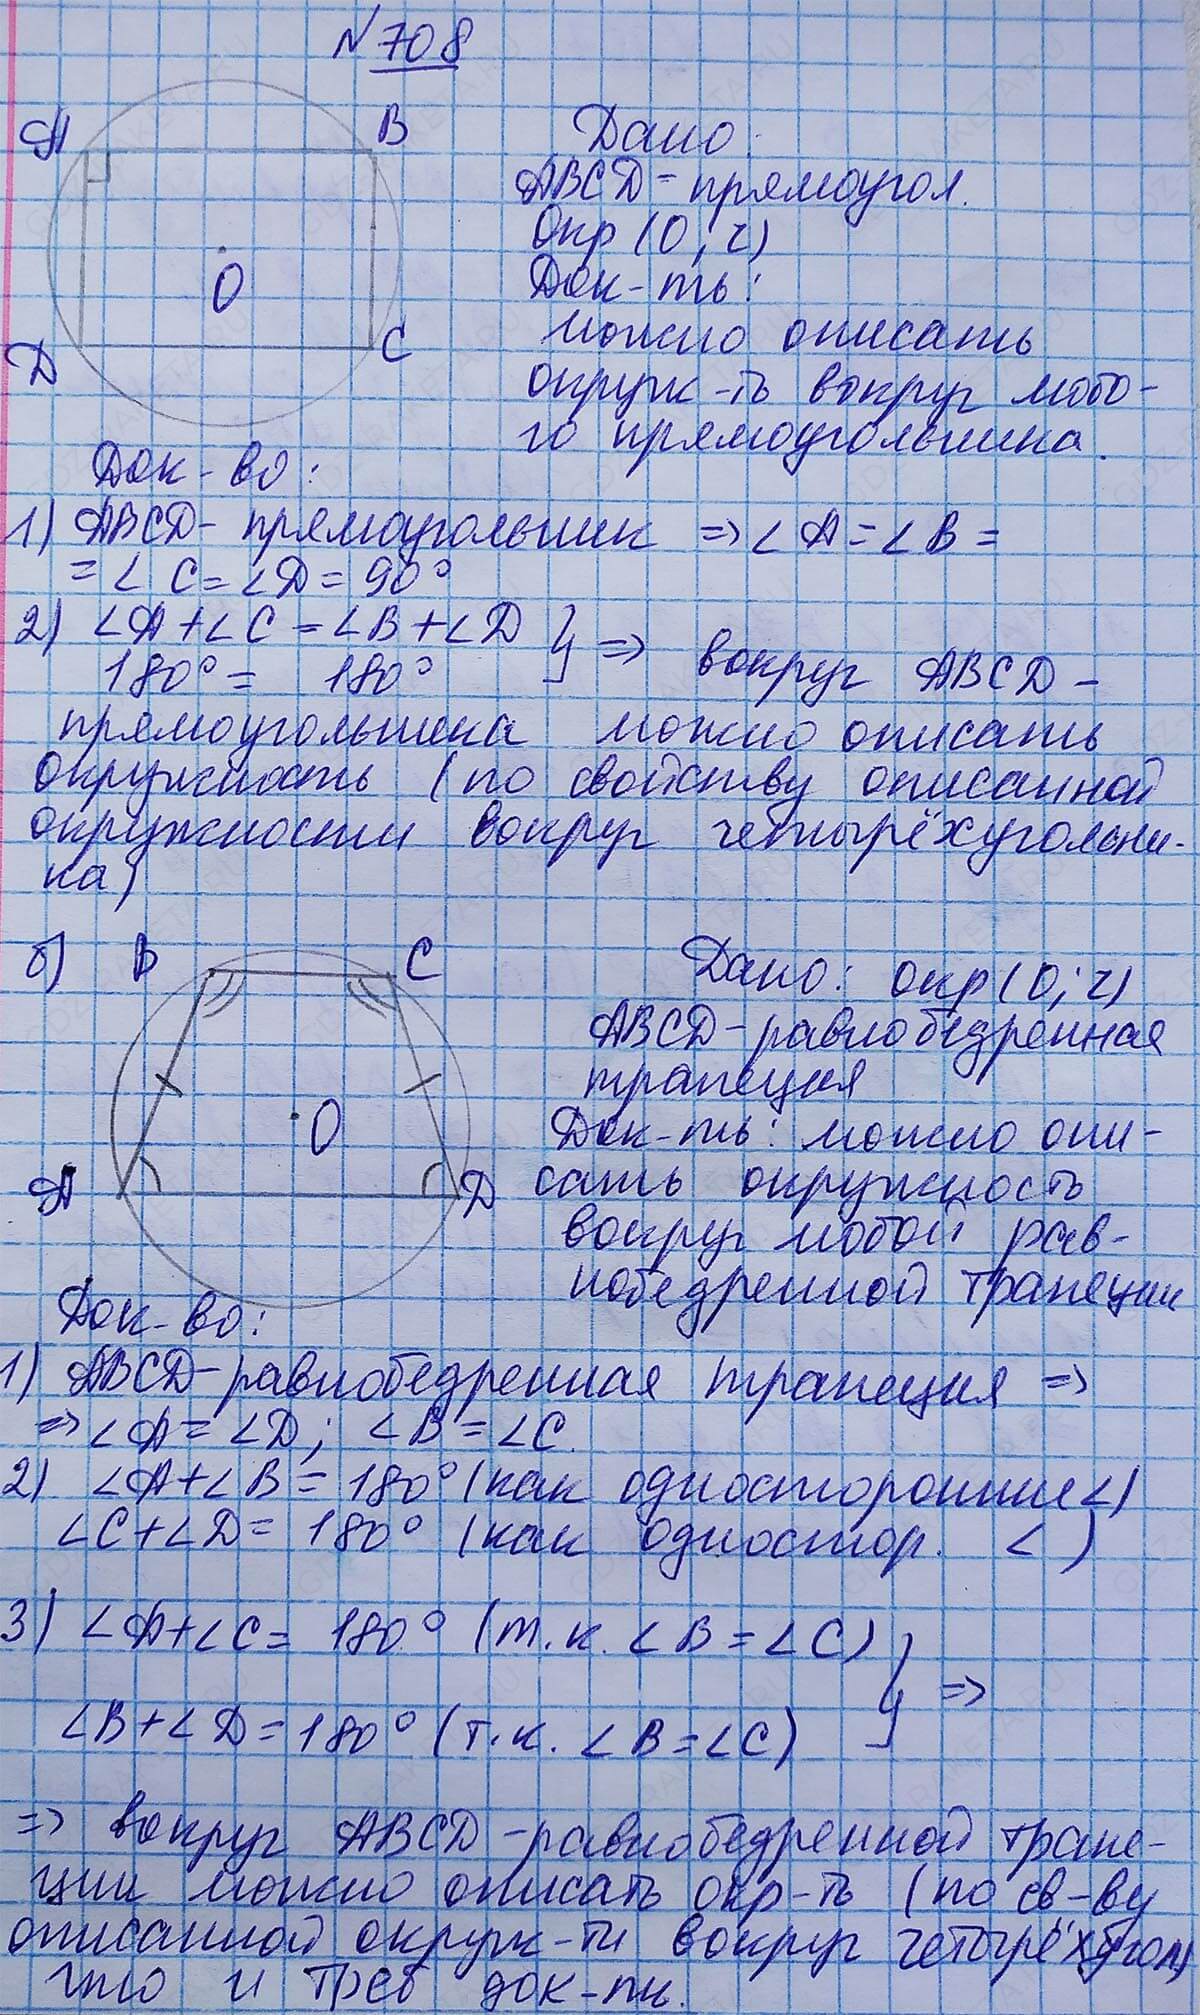 №708
А В
Дано:
ABCD - прямоугол.
Окр (O; r)
O
Док-ть:
можно описать
Д С
окруж-ть вокруг любо-
го прямоугольника.
Док-во:
1) ABCD - прямоугольник => ∠A = ∠B =
= ∠C = ∠D = 90°
2) ∠A + ∠C = ∠B + ∠D } => вокруг ABCD -
180° = 180°
прямоугольника можно описать
окружность (по свойству описанной
окружности вокруг четырёхугольни-
ка)
б) B C
Дано: окр (O; r)
ABCD - равнобедренная
трапеция
O
Док-ть: можно опи-
A Д
сать окружность
вокруг любой рав-
нобедренной трапеции
Док-во:
1) ABCD - равнобедренная трапеция =>
=> ∠A = ∠D; ∠B = ∠C.
2) ∠A + ∠B = 180° (как односторонние ∠)
∠C + ∠D = 180° (как одностор. ∠)
3) ∠A + ∠C = 180° (т.к. ∠B = ∠C) } =>
∠B + ∠D = 180° (т.к. ∠B = ∠C)
=> вокруг ABCD - равнобедренной трапе-
ции можно описать окр-ть (по св-ву
описанной окруж-ти вокруг четырёхугол)
что и треб док-ти.